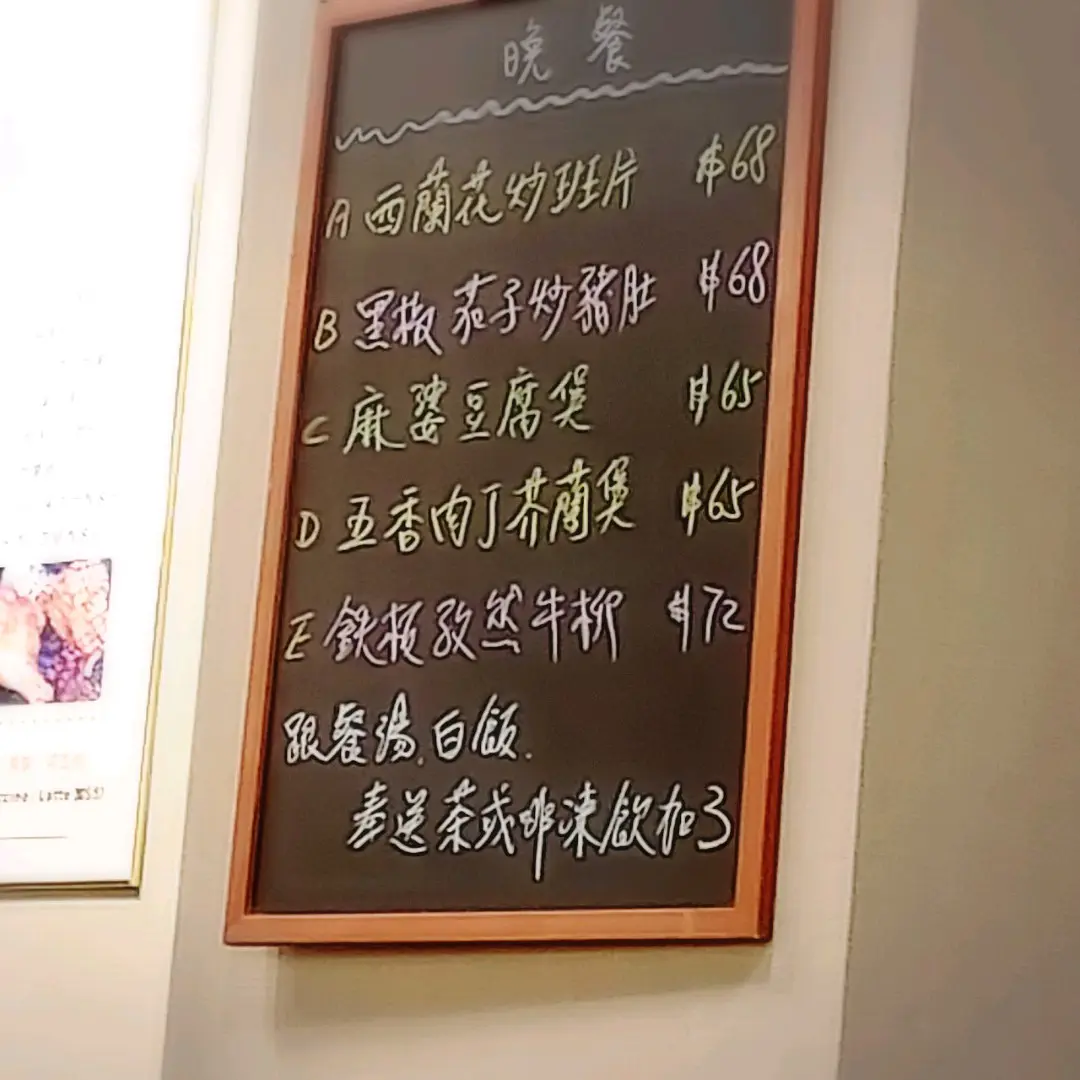 晚餐
A 西蘭花炒班片 $68
B 黑椒茄子炒豬肚 $68
C 麻婆豆腐煲 $65
D 五香肉丁芥蘭煲 $65
E 鉄板孜然牛柳 $72
跟餐湯.白飯.
奉送茶或啡凍飲加3
Latte